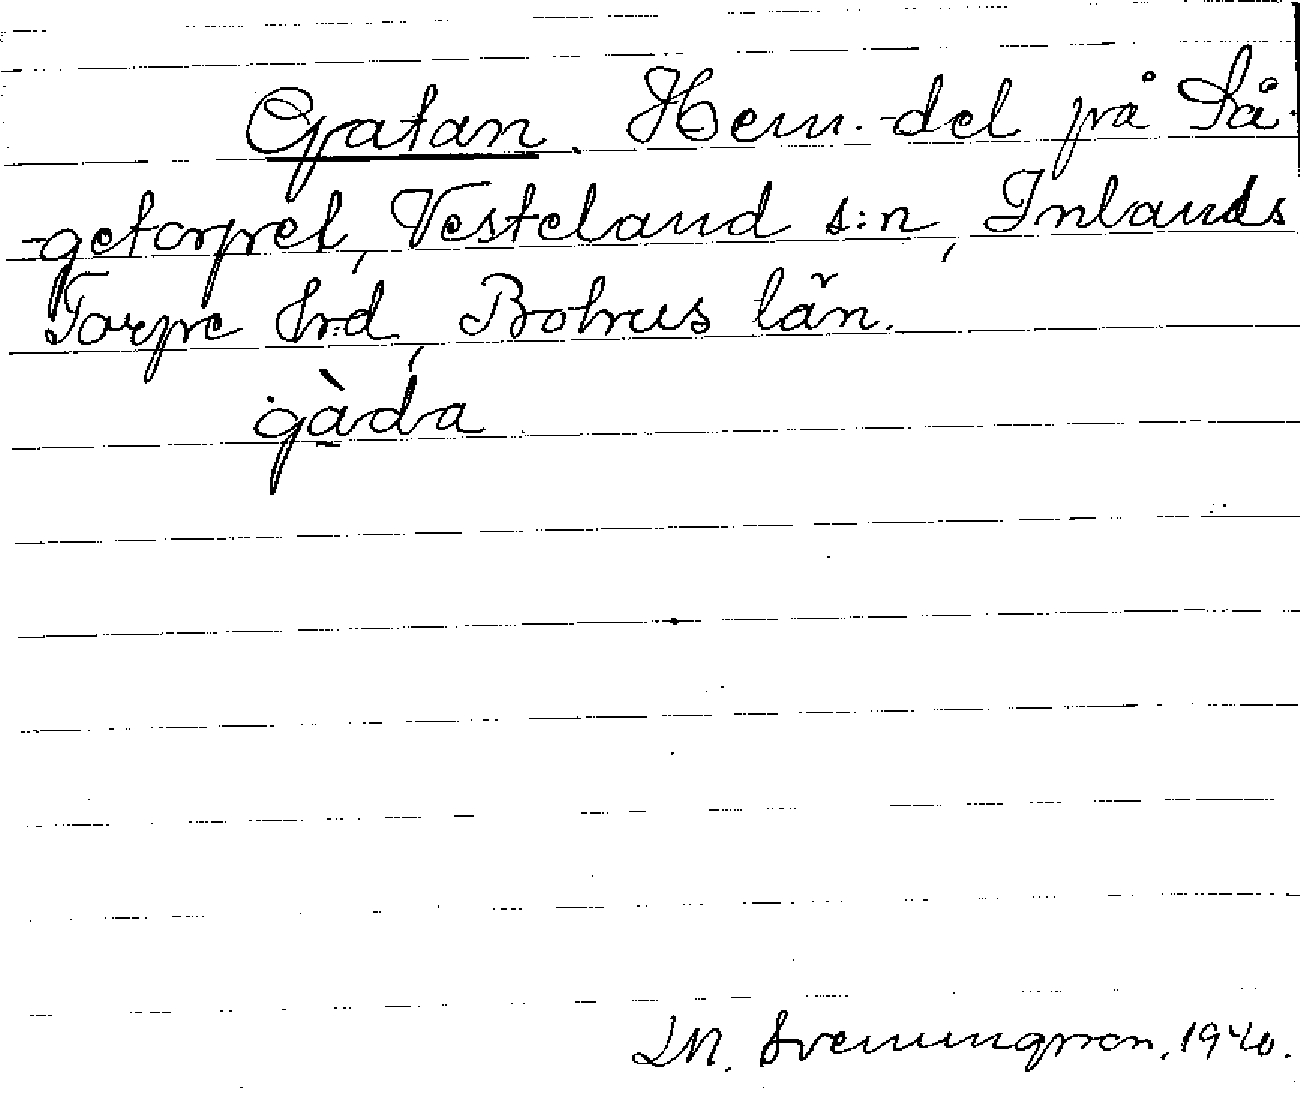 Gatan. Hem.-del på Så-
-getorpet, Vesteland s:n, Inlands
Torpe hrd, Bohus län.
gàda
M. Svenungsson, 1940.